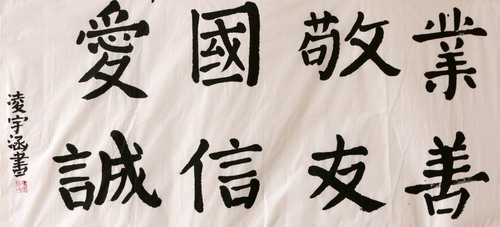 愛國敬業
誠信友善
凌宇涵書